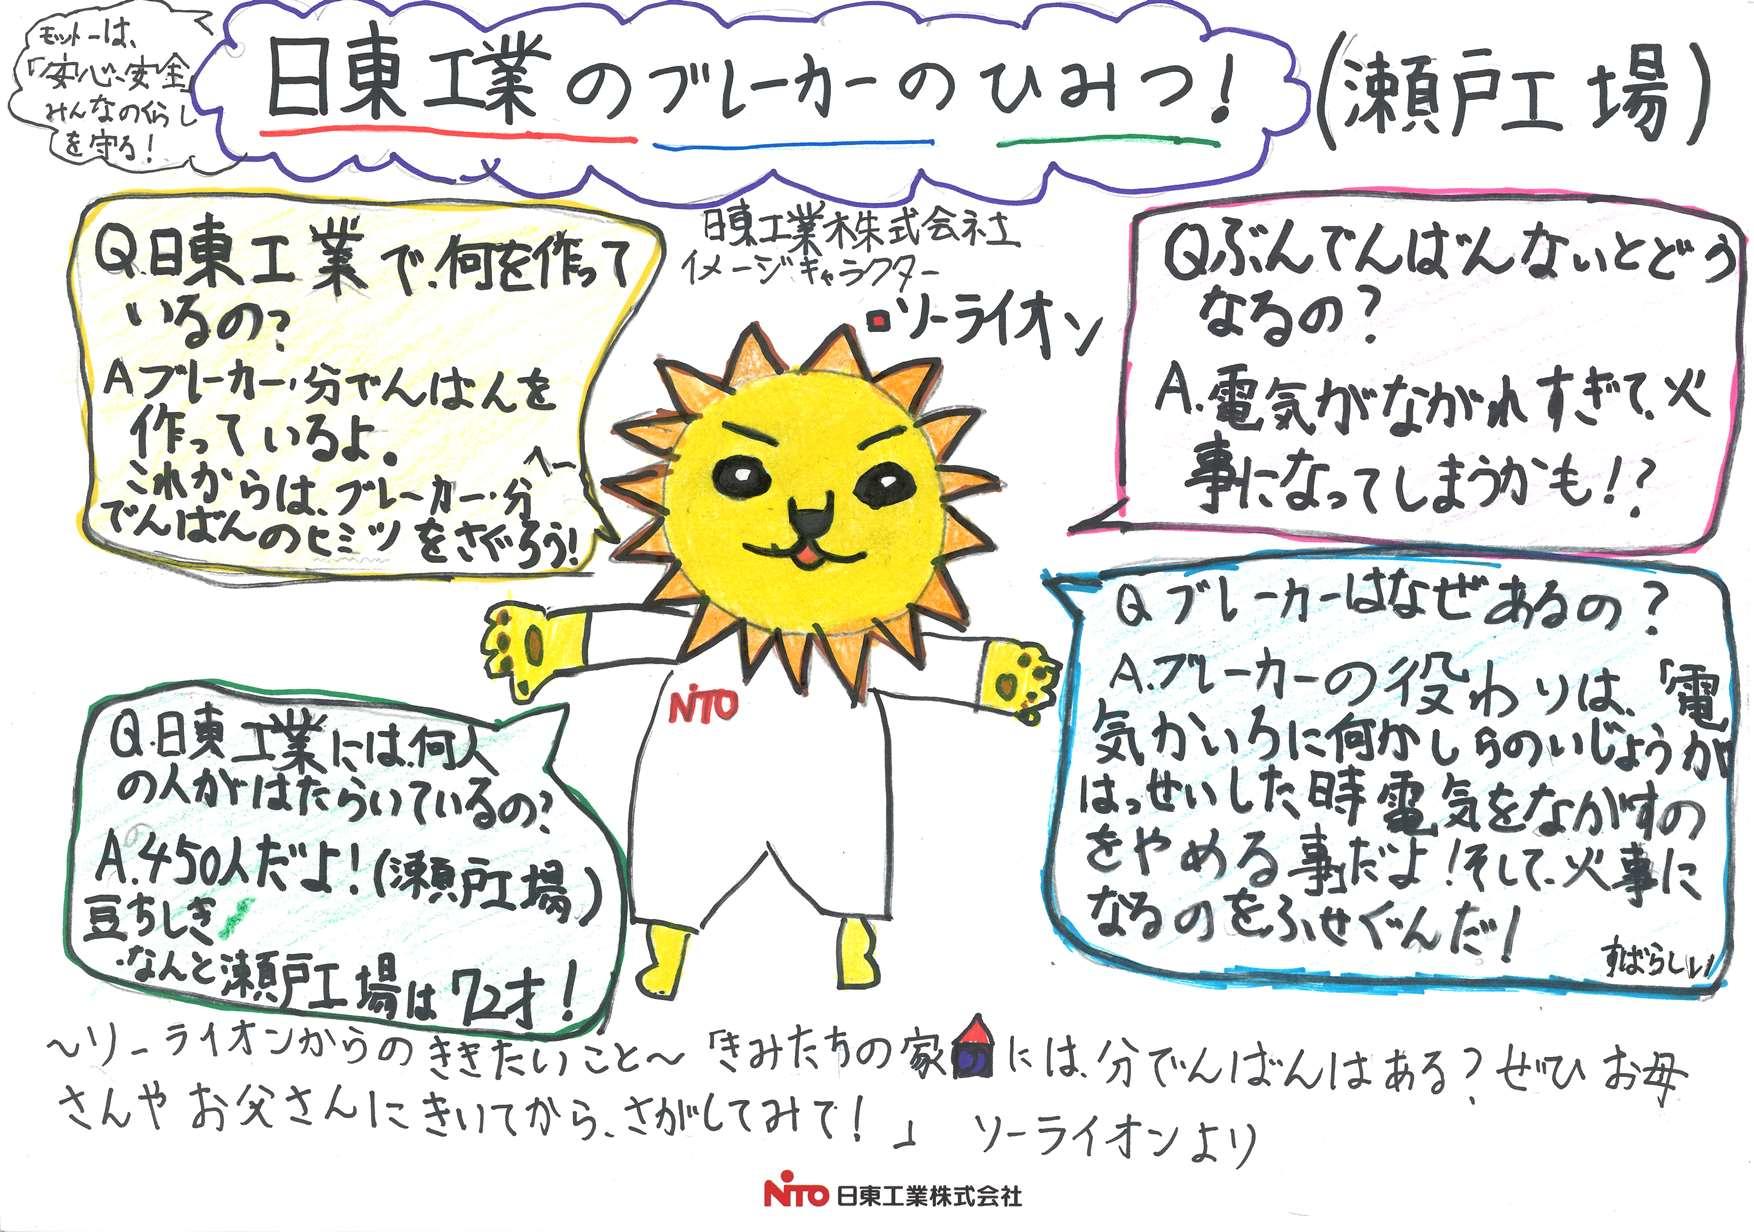 モットーは、
「安心・安全」
みんなのくらし
を守る！
日東工業のブレーカーのひみつ！
(瀬戸工場)
Q.日東工業で、何を作って
いるの？
Aブレーカー・分でんばんを
作っているよ。
へー
これからは、ブレーカー・分
でんばんのヒミツをさぐろう！
日東工業株式会社
イメージキャラクター
ソーライオン
Qぶんでんばんないとどう
なるの？
A.電気がながれすぎて、火
事になってしまうかも！？
Q ブレーカーはなぜあるの？
A.ブレーカーの役わりは、「電
気かいろに何かしらのいじょうが
はっせいした時電気をながすの
をやめる事」だよ！そして、火事に
なるのをふせぐんだ！
すばらしい
NiTO
Q.日東工業には、何人
の人がはたらいているの？
A.450人だよ！(瀬戸工場)
豆ちしき
・なんと瀬戸工場は72才！
～ソーライオンからのききたいこと～「きみたちの家には、分でんばんはある？ぜひお母
さんやお父さんにきいてから、さがしてみて！」 ソーライオンより
NiTO 日東工業株式会社